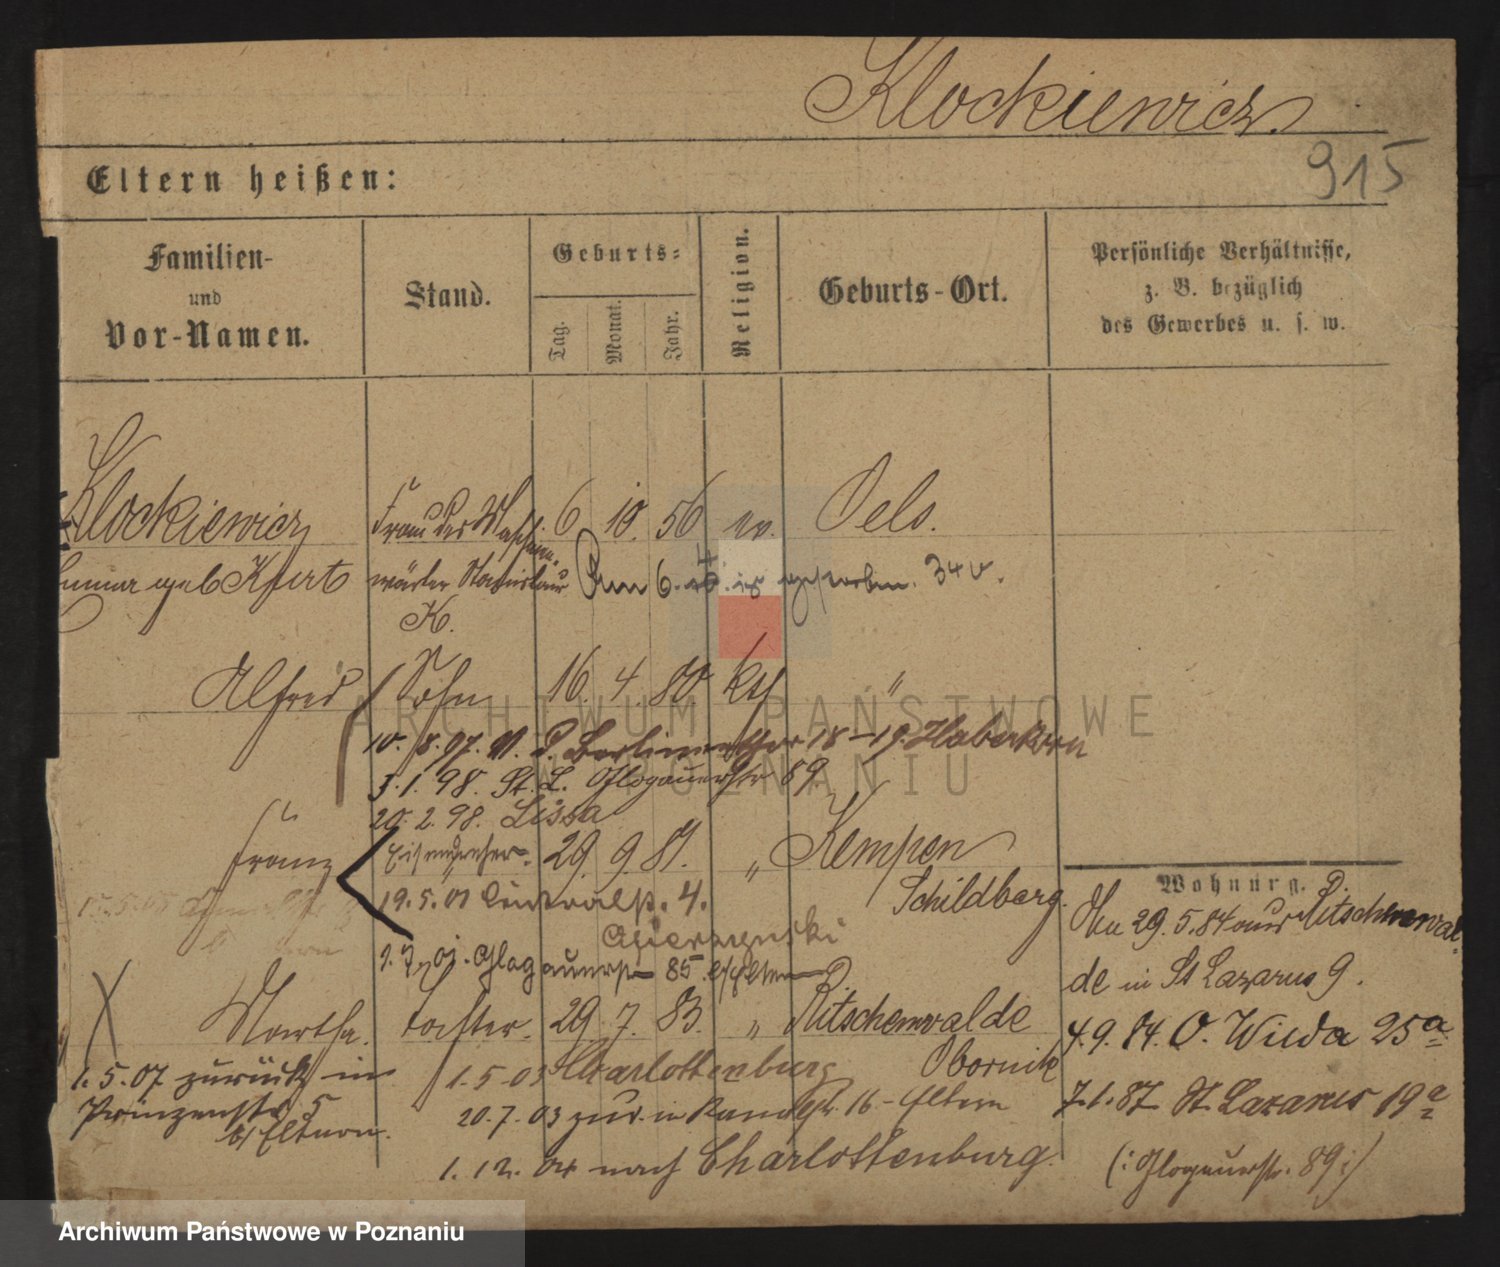 Klockiewicz.
915
Eltern heißen:
Familien-
und
Vor-Namen.
Stand.
Geburts-
Tag.
Monat.
Jahr.
Religion.
Geburts-Ort.
Persönliche Verhältnisse,
z. B. bezüglich
des Gewerbes u. s. w.
Klockiewicz Frau des Maschinen- 6 10. 56 ev. Oels.
geb wärter Stanislaus 6. gestorben.
K.
Alfred Sohn 16. 4. 80. kth "
10. 8. 97. Berlinerthor 18-19. Haberkorn
3. 1. 98. St. L. Glogauerstr 89.
20. 2. 98. Lissa
Franz Eisendreher. 29. 9. 81. " Kempen
19. 5. 01 Centralstr. 4. Schildberg.
Glogauerstr 85 b/Eltern
Martha. Tochter. 29. 7. 83. " Ritschenwalde
Obornik
1. 5. 07 zurück in
Prinzenstr 5
b/Eltern.
1. 5 03 Charlottenburg
20. 7. 03 zur. in 16 - Eltern
1. 12. 04 nach Charlottenburg.
Wohnung.
29. 5. 84 aus Ritschenwal-
de in St Lazarus 9.
4. 9. 84. O. Wilda 25a
7. 1. 87. St. Lazarus 19a
(: Glogauerstr. 89 :)
ARCHIWUM PAŃSTWOWE
W POZNANIU
Archiwum Państwowe w Poznaniu